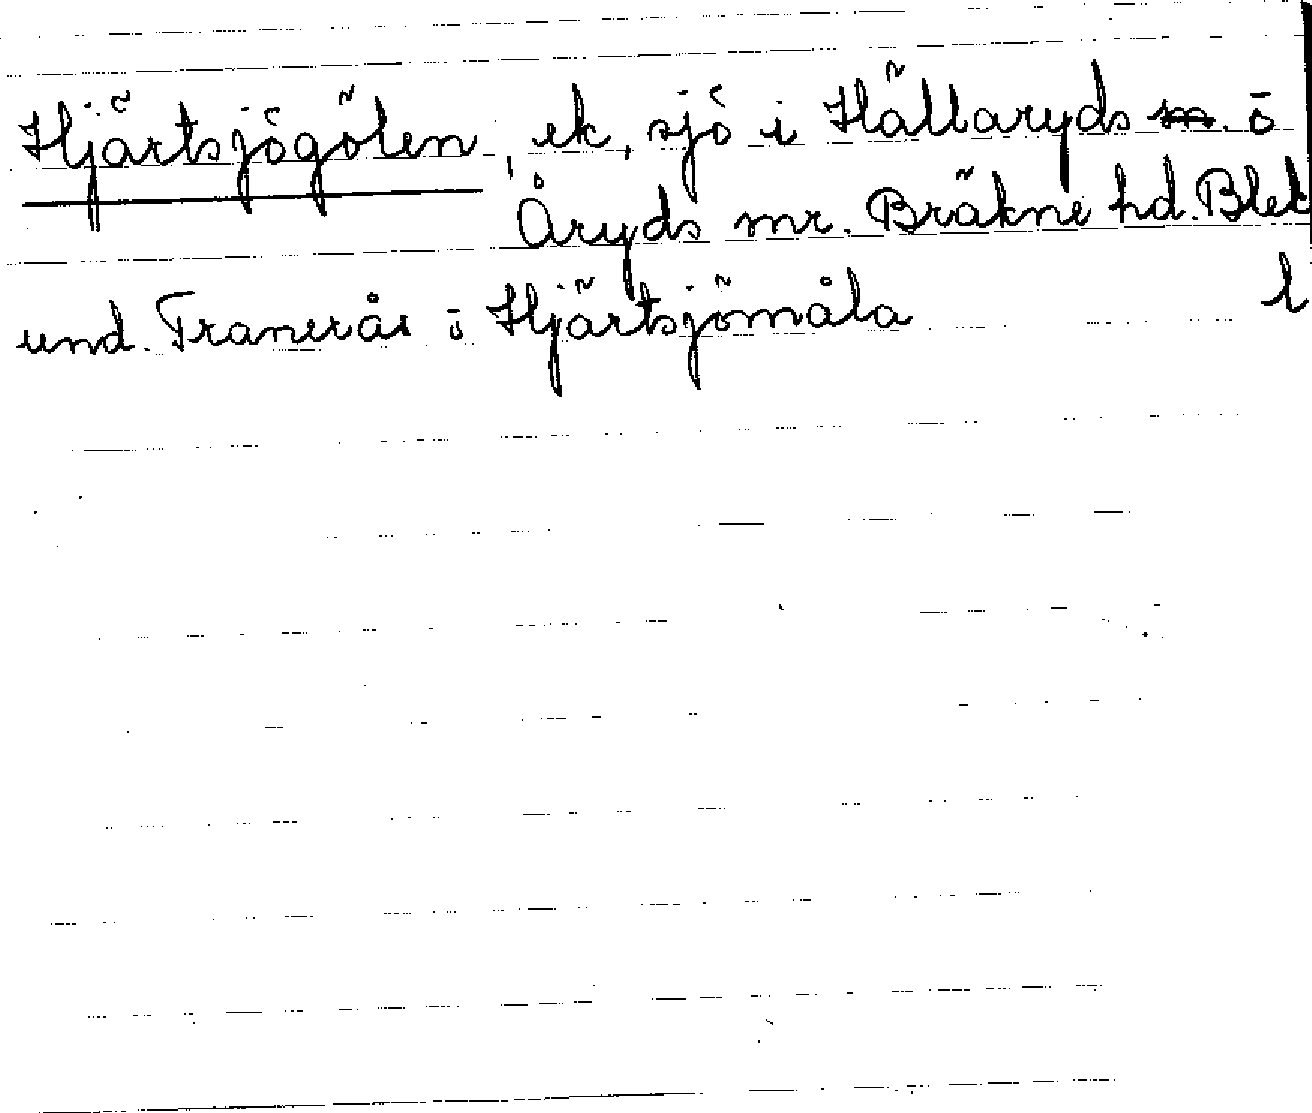 Hjärtsjögölen, ek, sjö i Hällaryds o
Åryds mr. Bräkne hd. Blek
l
und. Tranerås i Hjärtsjömåla